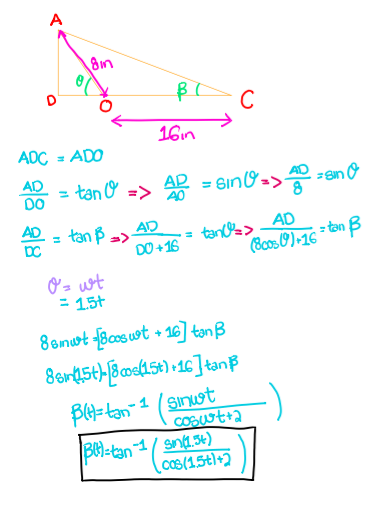 A
8in
θ
β
D
O
C
16in
ADC = ADO
AD/DO = tanθ => AD/AO = sinθ => AD/8 = sinθ
AD/DC = tanβ => AD/DO+16 = tanθ => AD/(8cosθ)+16 = tanβ
θ = wt
= 1.5t
8sinwt=[8coswt + 16] tanβ
8sin(1.5t)=[8cos(1.5t)+16] tanβ
β(t)=tan⁻¹ (sinwt/coswt+2)
β(t)=tan⁻¹ (sin(1.5t)/cos(1.5t)+2)